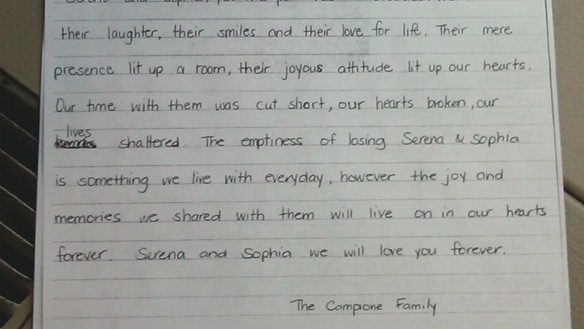 their laughter, their smiles and their love for life. Their mere
presence lit up a room, their joyous attitude lit up our hearts.
Our time with them was cut short, our hearts broken, our
lives
shattered. The emptiness of losing Serena & Sophia
is something we live with everyday, however the joy and
memories we shared with them will live on in our hearts
forever. Serena and Sophia we will love you forever.
The Campione Family